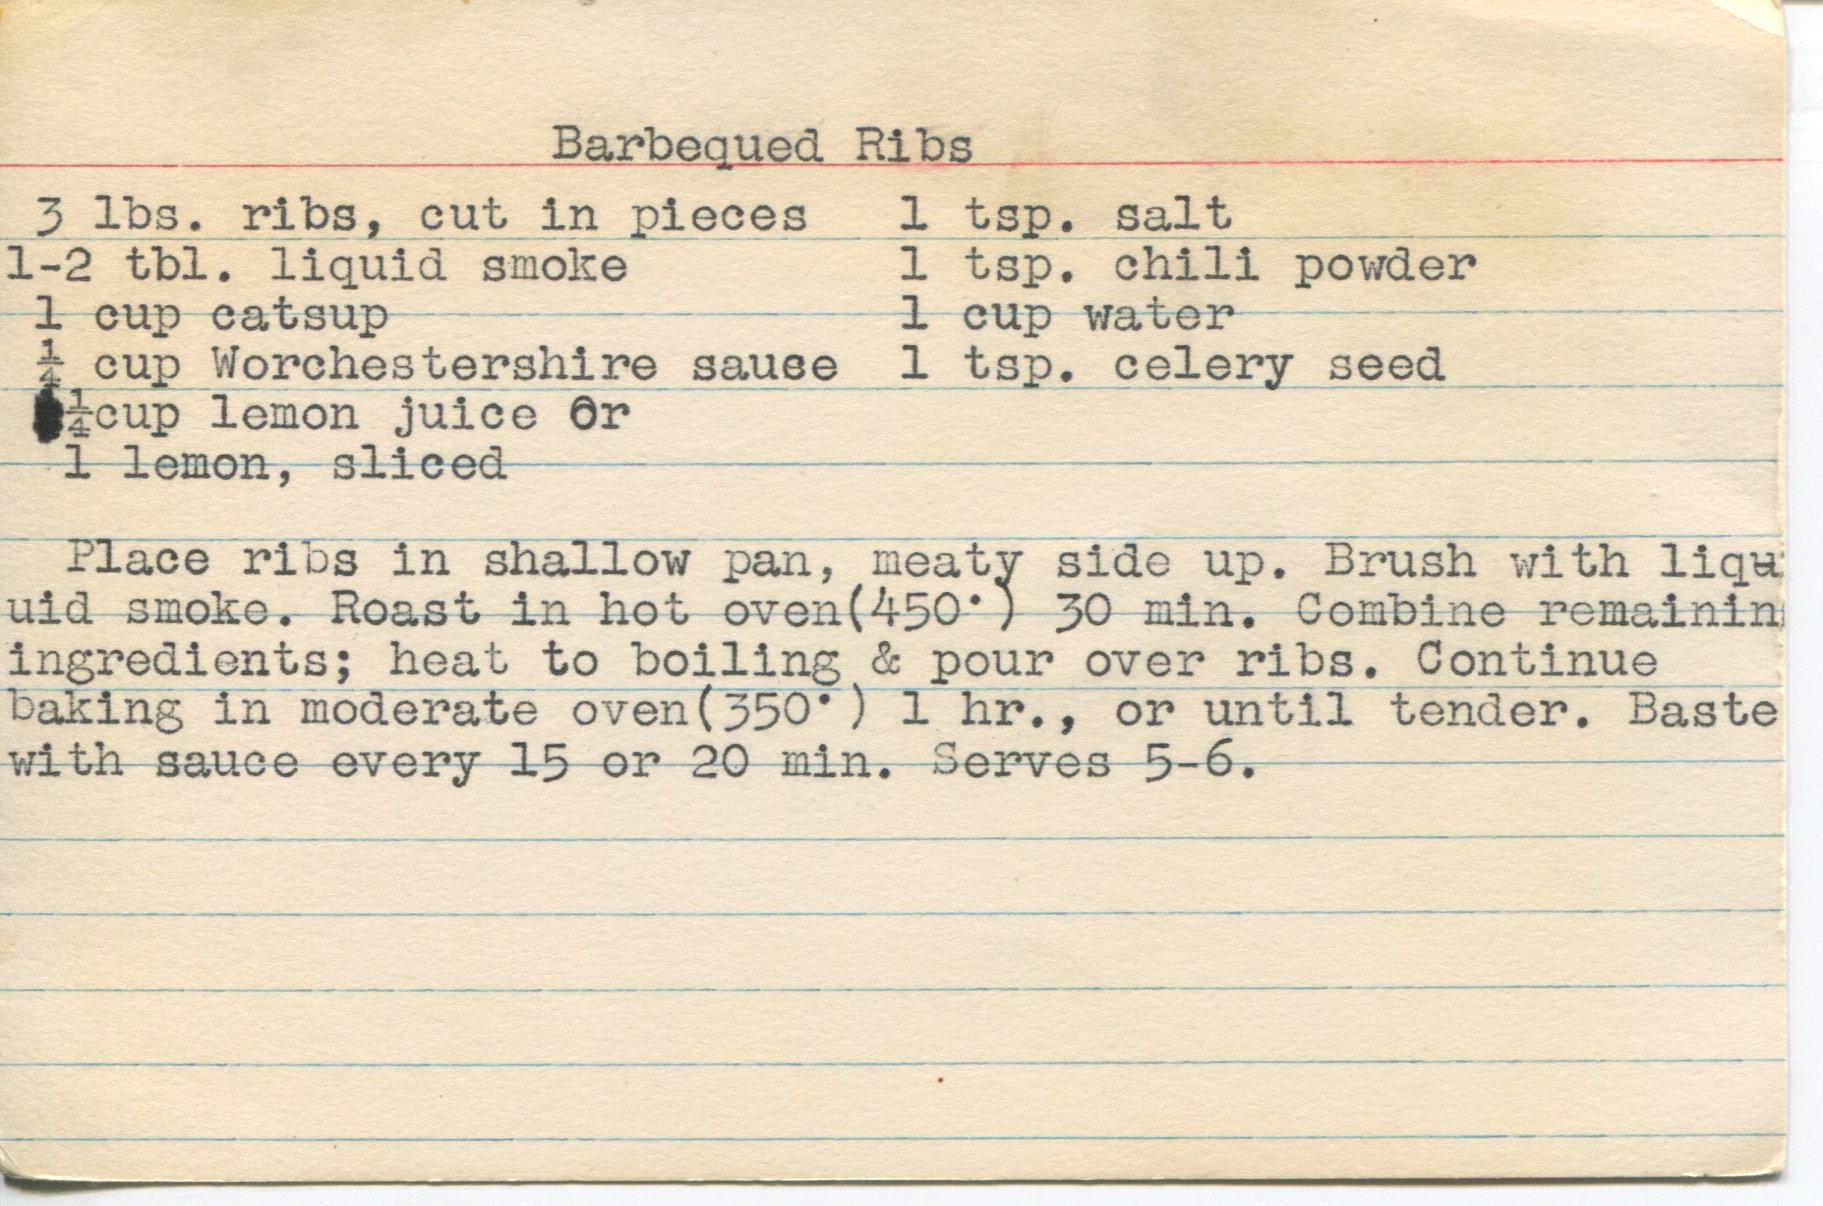 Barbequed Ribs
3 lbs. ribs, cut in pieces 1 tsp. salt
1-2 tbl. liquid smoke 1 tsp. chili powder
1 cup catsup 1 cup water
¼ cup Worchestershire sauce 1 tsp. celery seed
¼cup lemon juice Or
1 lemon, sliced
Place ribs in shallow pan, meaty side up. Brush with liqu
uid smoke. Roast in hot oven(450°) 30 min. Combine remaining
ingredients; heat to boiling & pour over ribs. Continue
baking in moderate oven(350°) 1 hr., or until tender. Baste
with sauce every 15 or 20 min. Serves 5-6.